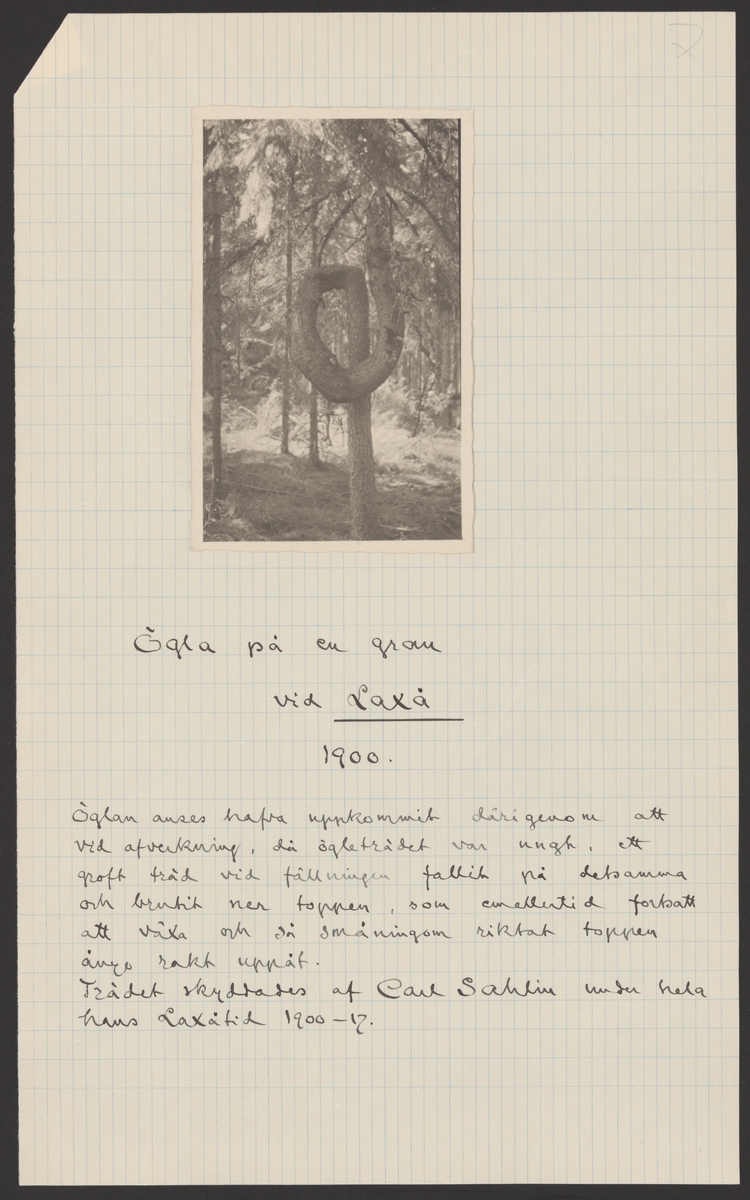 Ögla på en gran
vid Laxå
1900.
Öglan anses hafva uppkommit därigenom att
vid afverkning, då ögleträdet var ungt, ett
groft träd vid fällningen fallit på detsamma
och brutit ner toppen, som emellertid fortsatt
att växa och så småningom riktat toppen
ånyo rakt uppåt.
Trädet skyddades af Carl Sahlin under hela
hans Laxåtid 1900-17.